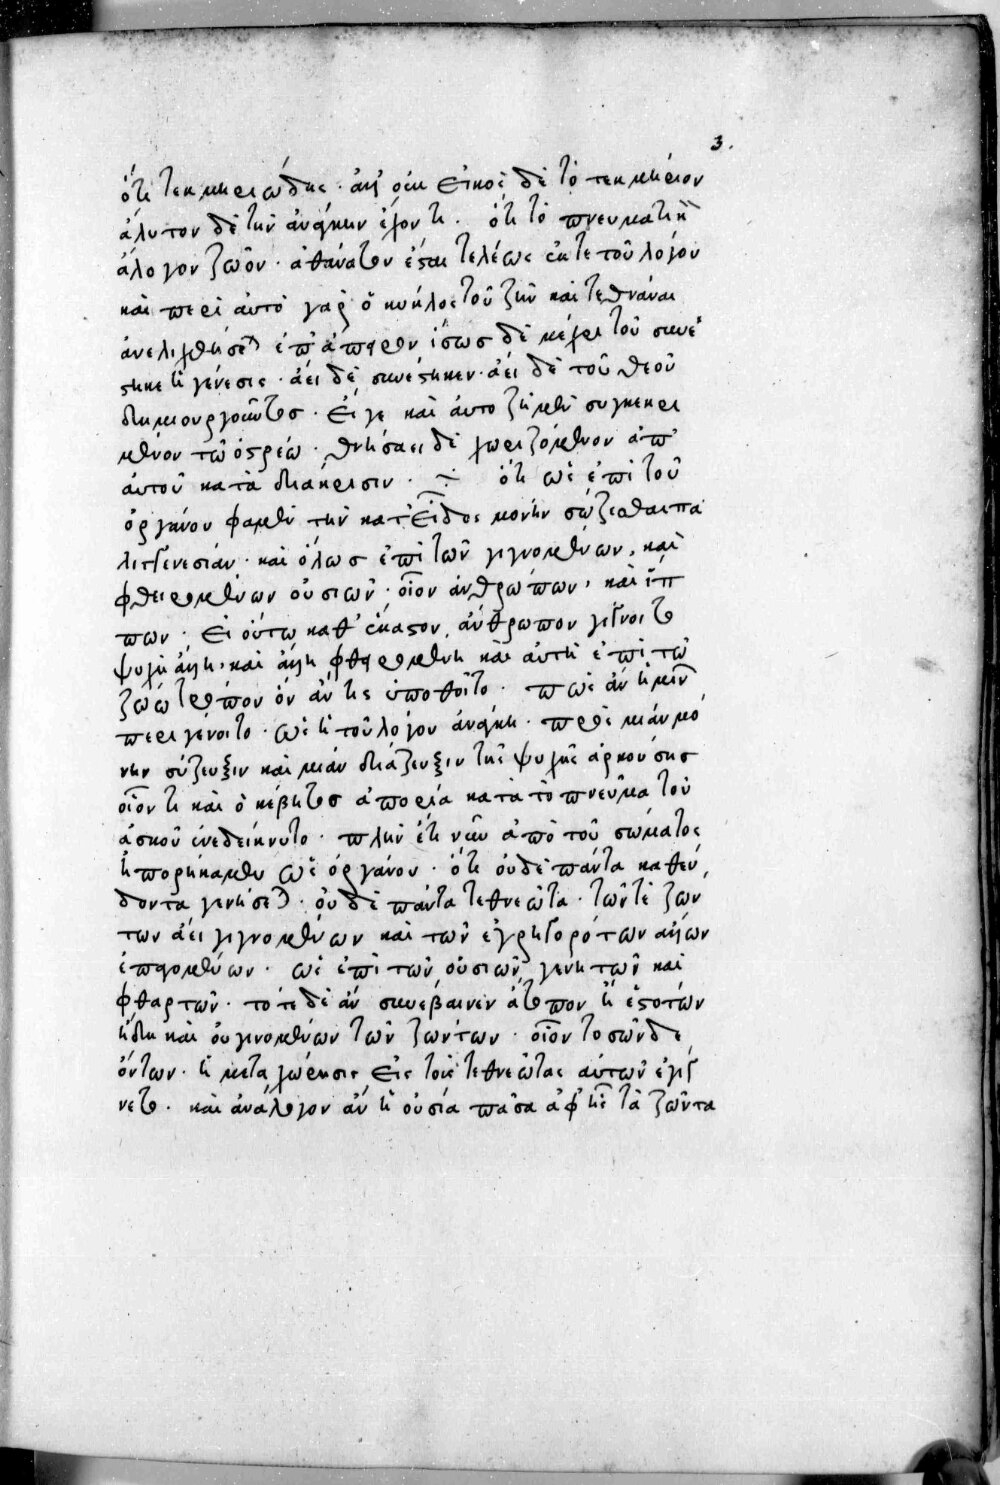 3.
ὅτι τεκμηριώδης· ἀλλ' οὐκ εἰκὸς δὲ τὸ τεκμήριον
ἄλυτον δὲ τὴν ἀνάγκην ἔχον τι. ὅτι τὸ πνευματικὸν
ἄλογον ζῶον· ἀθάνατον ἔσται τελέως ἔκ τε τοῦ λόγου
καὶ περὶ αὐτὸ γὰρ ὁ κύκλος τοῦ ζῆν καὶ τεθνάναι
ἀνελιχθήσεται ἐπ' ἄπειρον ἴσως δὲ μέχρι τοῦ συνέ
στηκε ἡ γένεσις· ἀεὶ δὲ συνέστηκεν· ἀεὶ δὲ τοῦ θεοῦ
δημιουργοῦντος· Εἴγε καὶ αὐτὸ ζῇ μὲν συγκεκρι
μένον τῷ ὀστρέῳ· θνήσκει δὲ χωριζόμενον ἀπ'
αὐτοῦ κατὰ διάκρισιν· ÷ ὅτι ὡς ἐπὶ τοῦ
ὀργάνου φαμὲν τὴν κατ' εἶδος μονὴν σώζεσθαι πα
λιγγενεσίαν· καὶ ὅλως ἐπὶ τῶν γιγνομένων, καὶ
φθειρομένων οὐσιῶν· οἷον ἀνθρώπων, καὶ ἵπ
πων· Εἰ οὕτω καθ' ἕκαστον ἄνθρωπον γίγνοιτο
ψυχὴ ἄλλη, καὶ ἄλλη φθειρομένη καὶ αὐτὴ ἐπὶ τῷ
ζώῳ τρόπον ὃν ἄν τις ὑποθοῖτο· πῶς ἂν ἡμῖν
περιγένοιτο· ὡς ἡ τοῦ λόγου ἀνάγκη· πρὸς μίαν μό
νην σύζευξιν καὶ μίαν διάζευξιν τῆς ψυχῆς ἀρκούσης
οἷόν τι καὶ ὁ κέβητος ἀπορία κατὰ τὸ πνεῦμα τοῦ
ἀσκοῦ ἐνεδείκνυτο· πλὴν ἔτι νῦν ἀπὸ τοῦ σώματος
ἠπορήκαμεν ὡς ὀργάνου· ὅτι οὐδὲ πάντα καθεύ
δοντα γενήσεται· οὐδὲ πάντα τεθνεῶτα· τῶν τε ζών
των ἀεὶ γιγνομένων καὶ τῶν ἐγρηγορότων ἄλλων
ἐπιρρομένων· ὡς ἐπὶ τῶν οὐσιῶν γενητῶν καὶ
φθαρτῶν· τότε δὲ ἂν συνέβαινεν ἄτοπον ἢ ἑστώτων
ἤδη καὶ οὐ γινομένων τῶν ζώντων· οἷον τοσῶνδε
ὄντων· ἡ μεταχώρησις εἰς τοὺς τεθνεῶτας αὐτῶν ἐγίγ
νετο· καὶ ἀνάλογον ἂν ἡ οὐσία πᾶσα ἀφ' ἧς τὰ ζῶντα